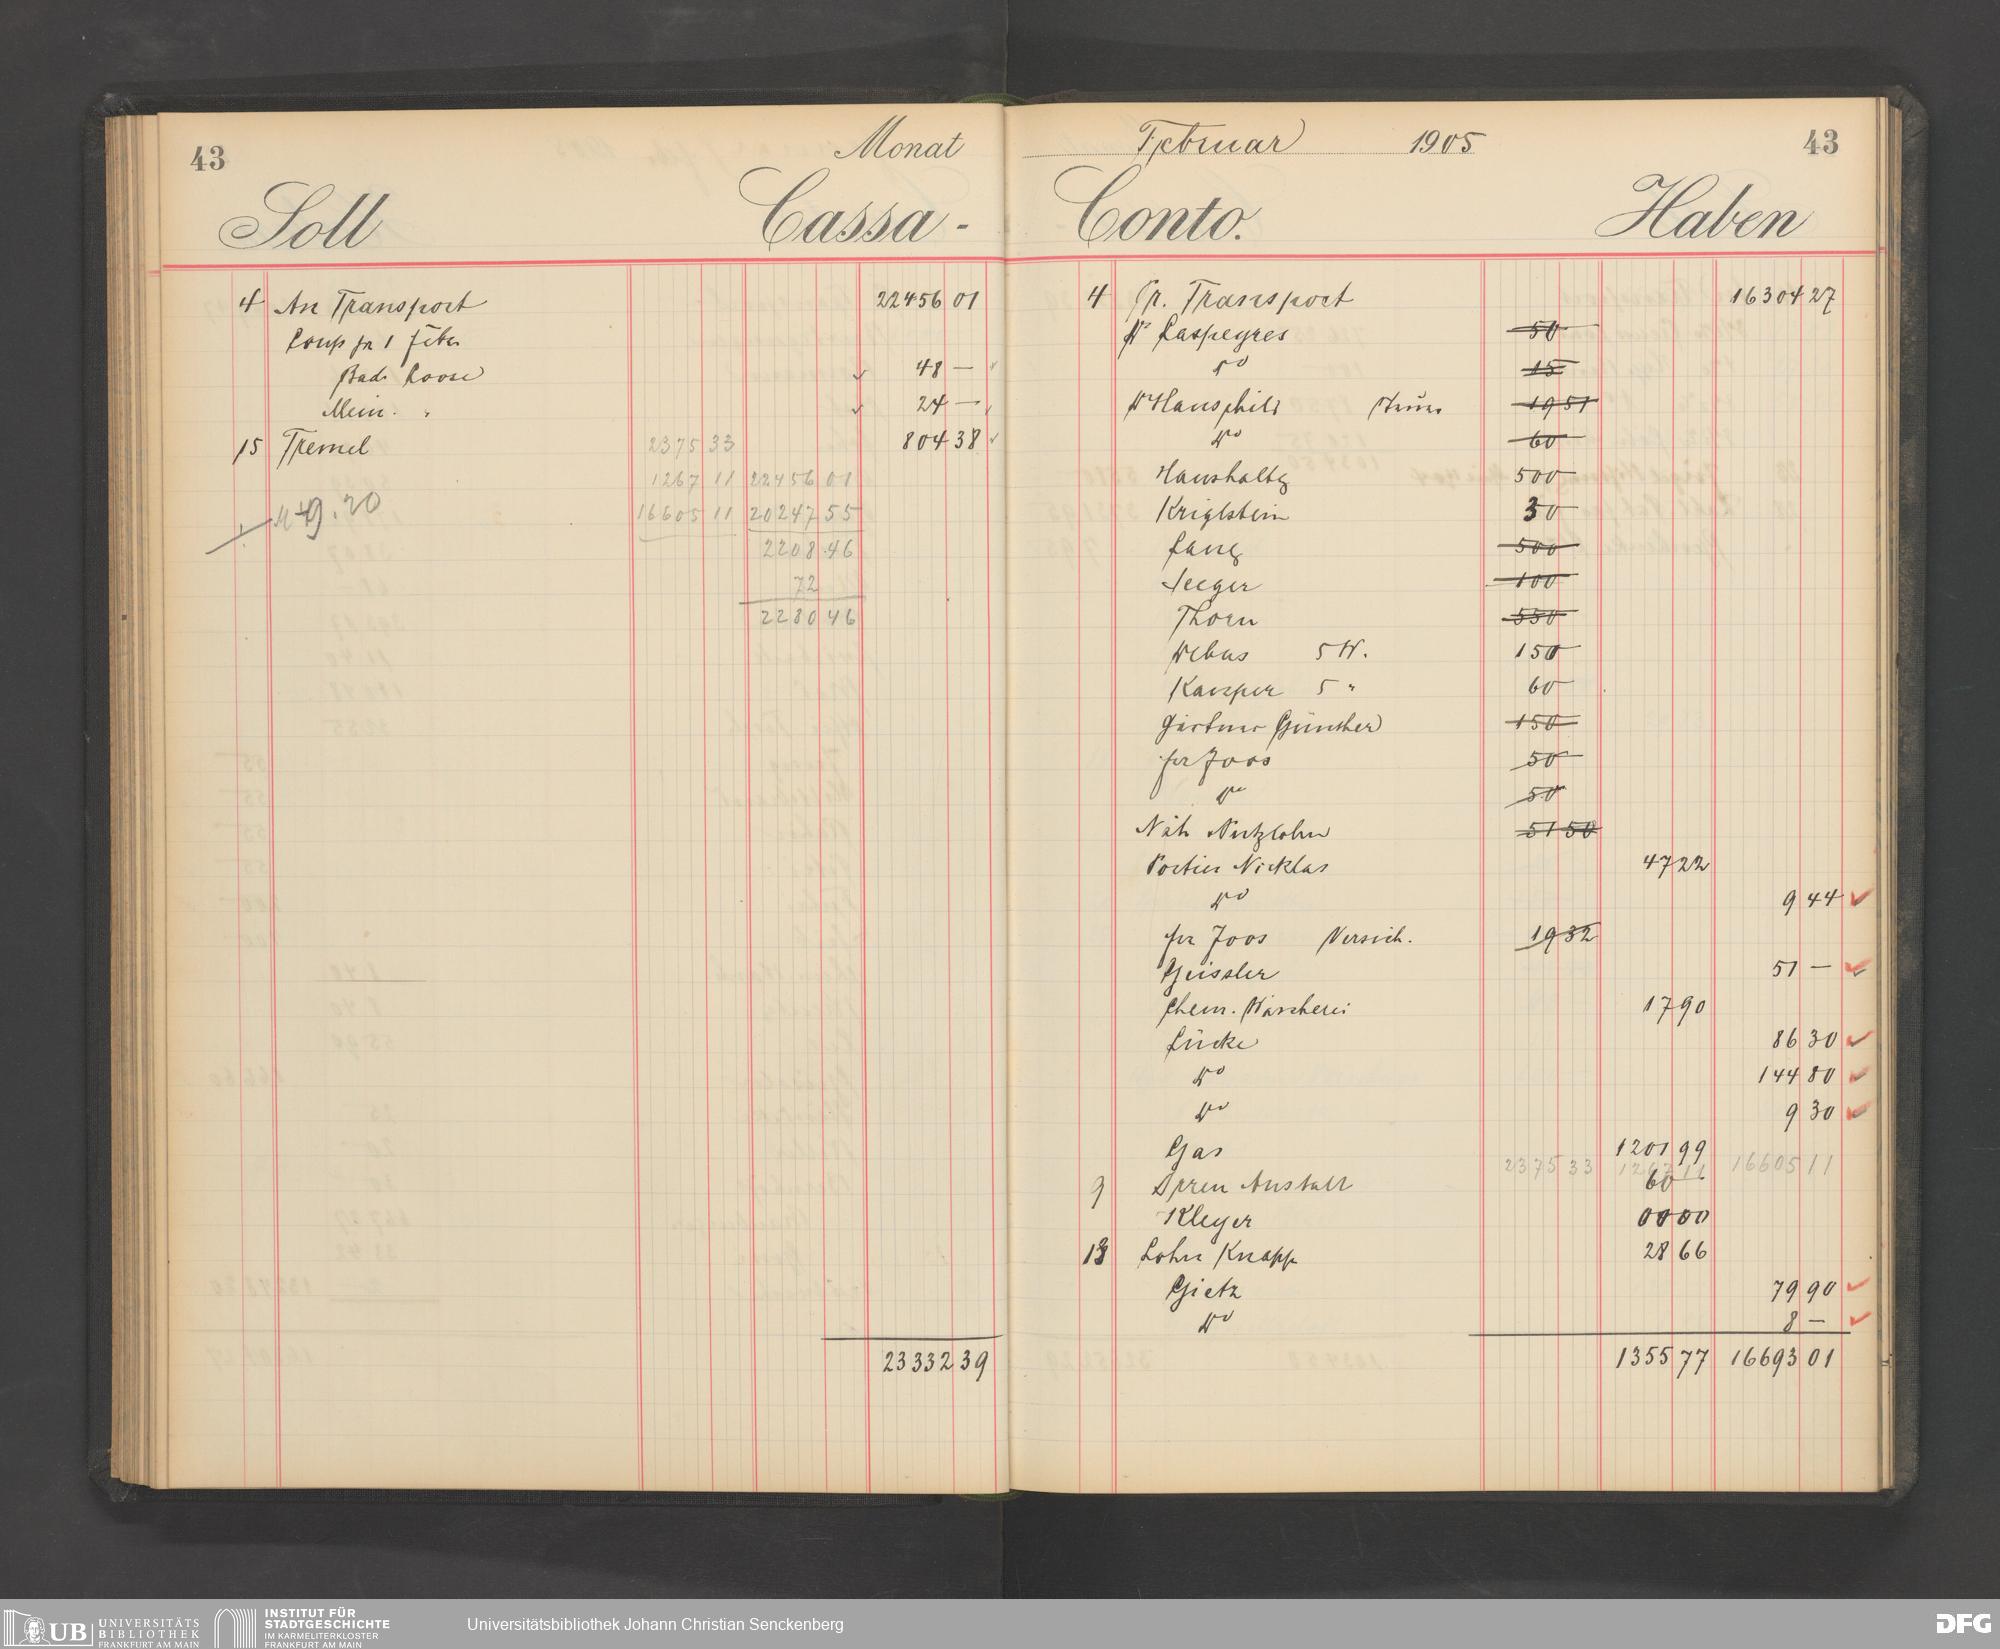 43
Monat
Soll
Cassa -
4 An Transport 22456 01
Coup pr 1 Febr
Bad. Loose 48 —
Mein. " 24 —
15 Tremel 2375 33 804 38
1267 11 22456 01
M 49.20 16605 11 20247 55
2208.46
72
2280 46
23332 39
Februar 1905
43
Conto.
Haben
4 Pr. Transport 16304 27
Laspeyres 50
do 15
Hauschild 1951
do 60
Haushaltg 500
Kriglstein 30
Lang 500
Seeger 100
Thorn 550
Webus 5 W. 150
Kaesper 5 " 60
Gärtner Günther 150
für Joos 50
do 50
Näh 51 50
Portier Nicklas 47 22
do 9 44
für Joos Versich. 19 32
Geissler 51 —
Chem. Wäscherei 17 90
Lücke 86 30
do 144 80
do 9 30
Gas 1201 99
2375 33 1267 11 16605 11
9 Irren Anstalt 60
Kleyer 00 00
13 Lohn Knapp 28 66
Gietz 79 90
do 8 —
1355 77 16693 01
UB UNIVERSITÄTS
BIBLIOTHEK
FRANKFURT AM MAIN
INSTITUT FÜR
STADTGESCHICHTE
IM KARMELITERKLOSTER
FRANKFURT AM MAIN
Universitätsbibliothek Johann Christian Senckenberg
DFG